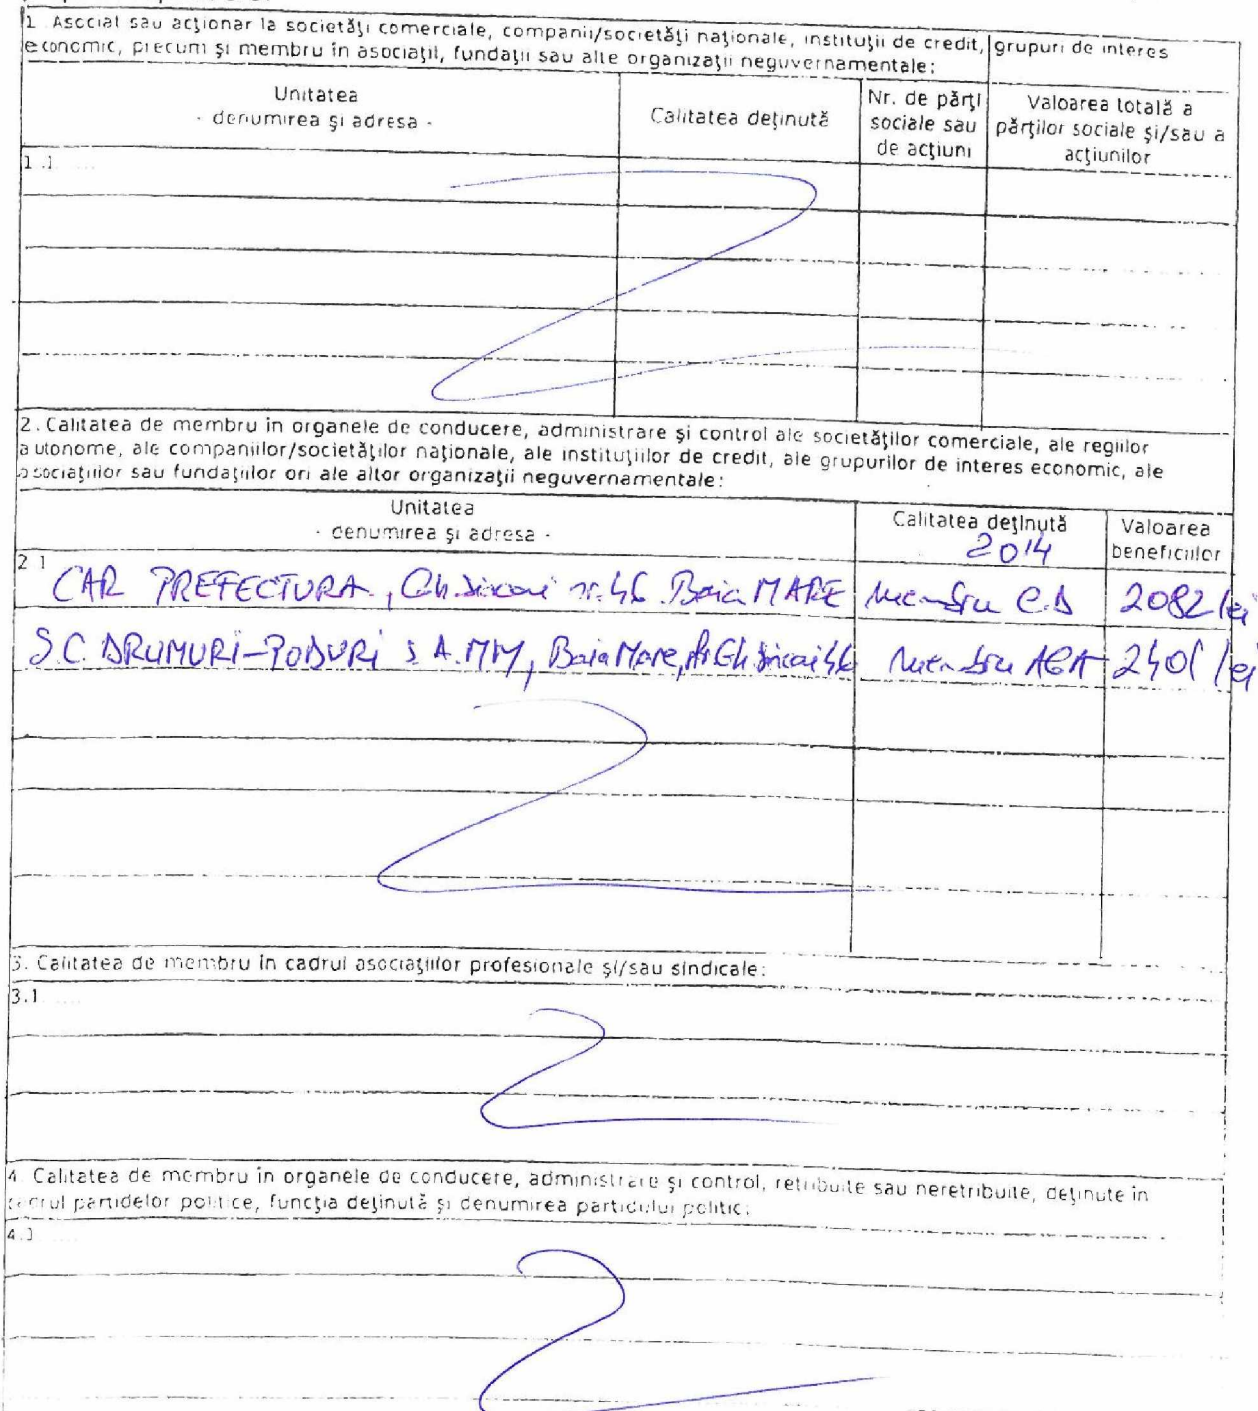 1. Asociat sau acţionar la societăţi comerciale, companii/societăţi naţionale, instituţii de credit, grupuri de interes
economic, precum şi membru în asociaţii, fundaţii sau alte organizaţii neguvernamentale:
Unitatea
- denumirea şi adresa -
Calitatea deţinută
Nr. de părţi
sociale sau
de acţiuni
Valoarea totală a
părţilor sociale şi/sau a
acţiunilor
1.1. ....
2. Calitatea de membru în organele de conducere, administrare şi control ale societăţilor comerciale, ale regiilor
autonome, ale companiilor/societăţilor naţionale, ale instituţiilor de credit, ale grupurilor de interes economic, ale
asociaţiilor sau fundaţiilor ori ale altor organizaţii neguvernamentale:
Unitatea
- denumirea şi adresa -
Calitatea deţinută
2014
Valoarea
beneficiilor
2.1
CAR PREFECTURA, Gh. Sincai nr. 46 Baia MARE membru C.D 2082 lei
S.C. DRUMURI-PODURI S.A. MM, Baia Mare, Gh Sincai 46 membru AGA 2401 lei
3. Calitatea de membru în cadrul asociaţiilor profesionale şi/sau sindicale:
3.1. ....
4. Calitatea de membru în organele de conducere, administrare şi control, retribuite sau neretribuite, deţinute în
cadrul partidelor politice, funcţia deţinută şi denumirea partidului politic:
4.1. ....